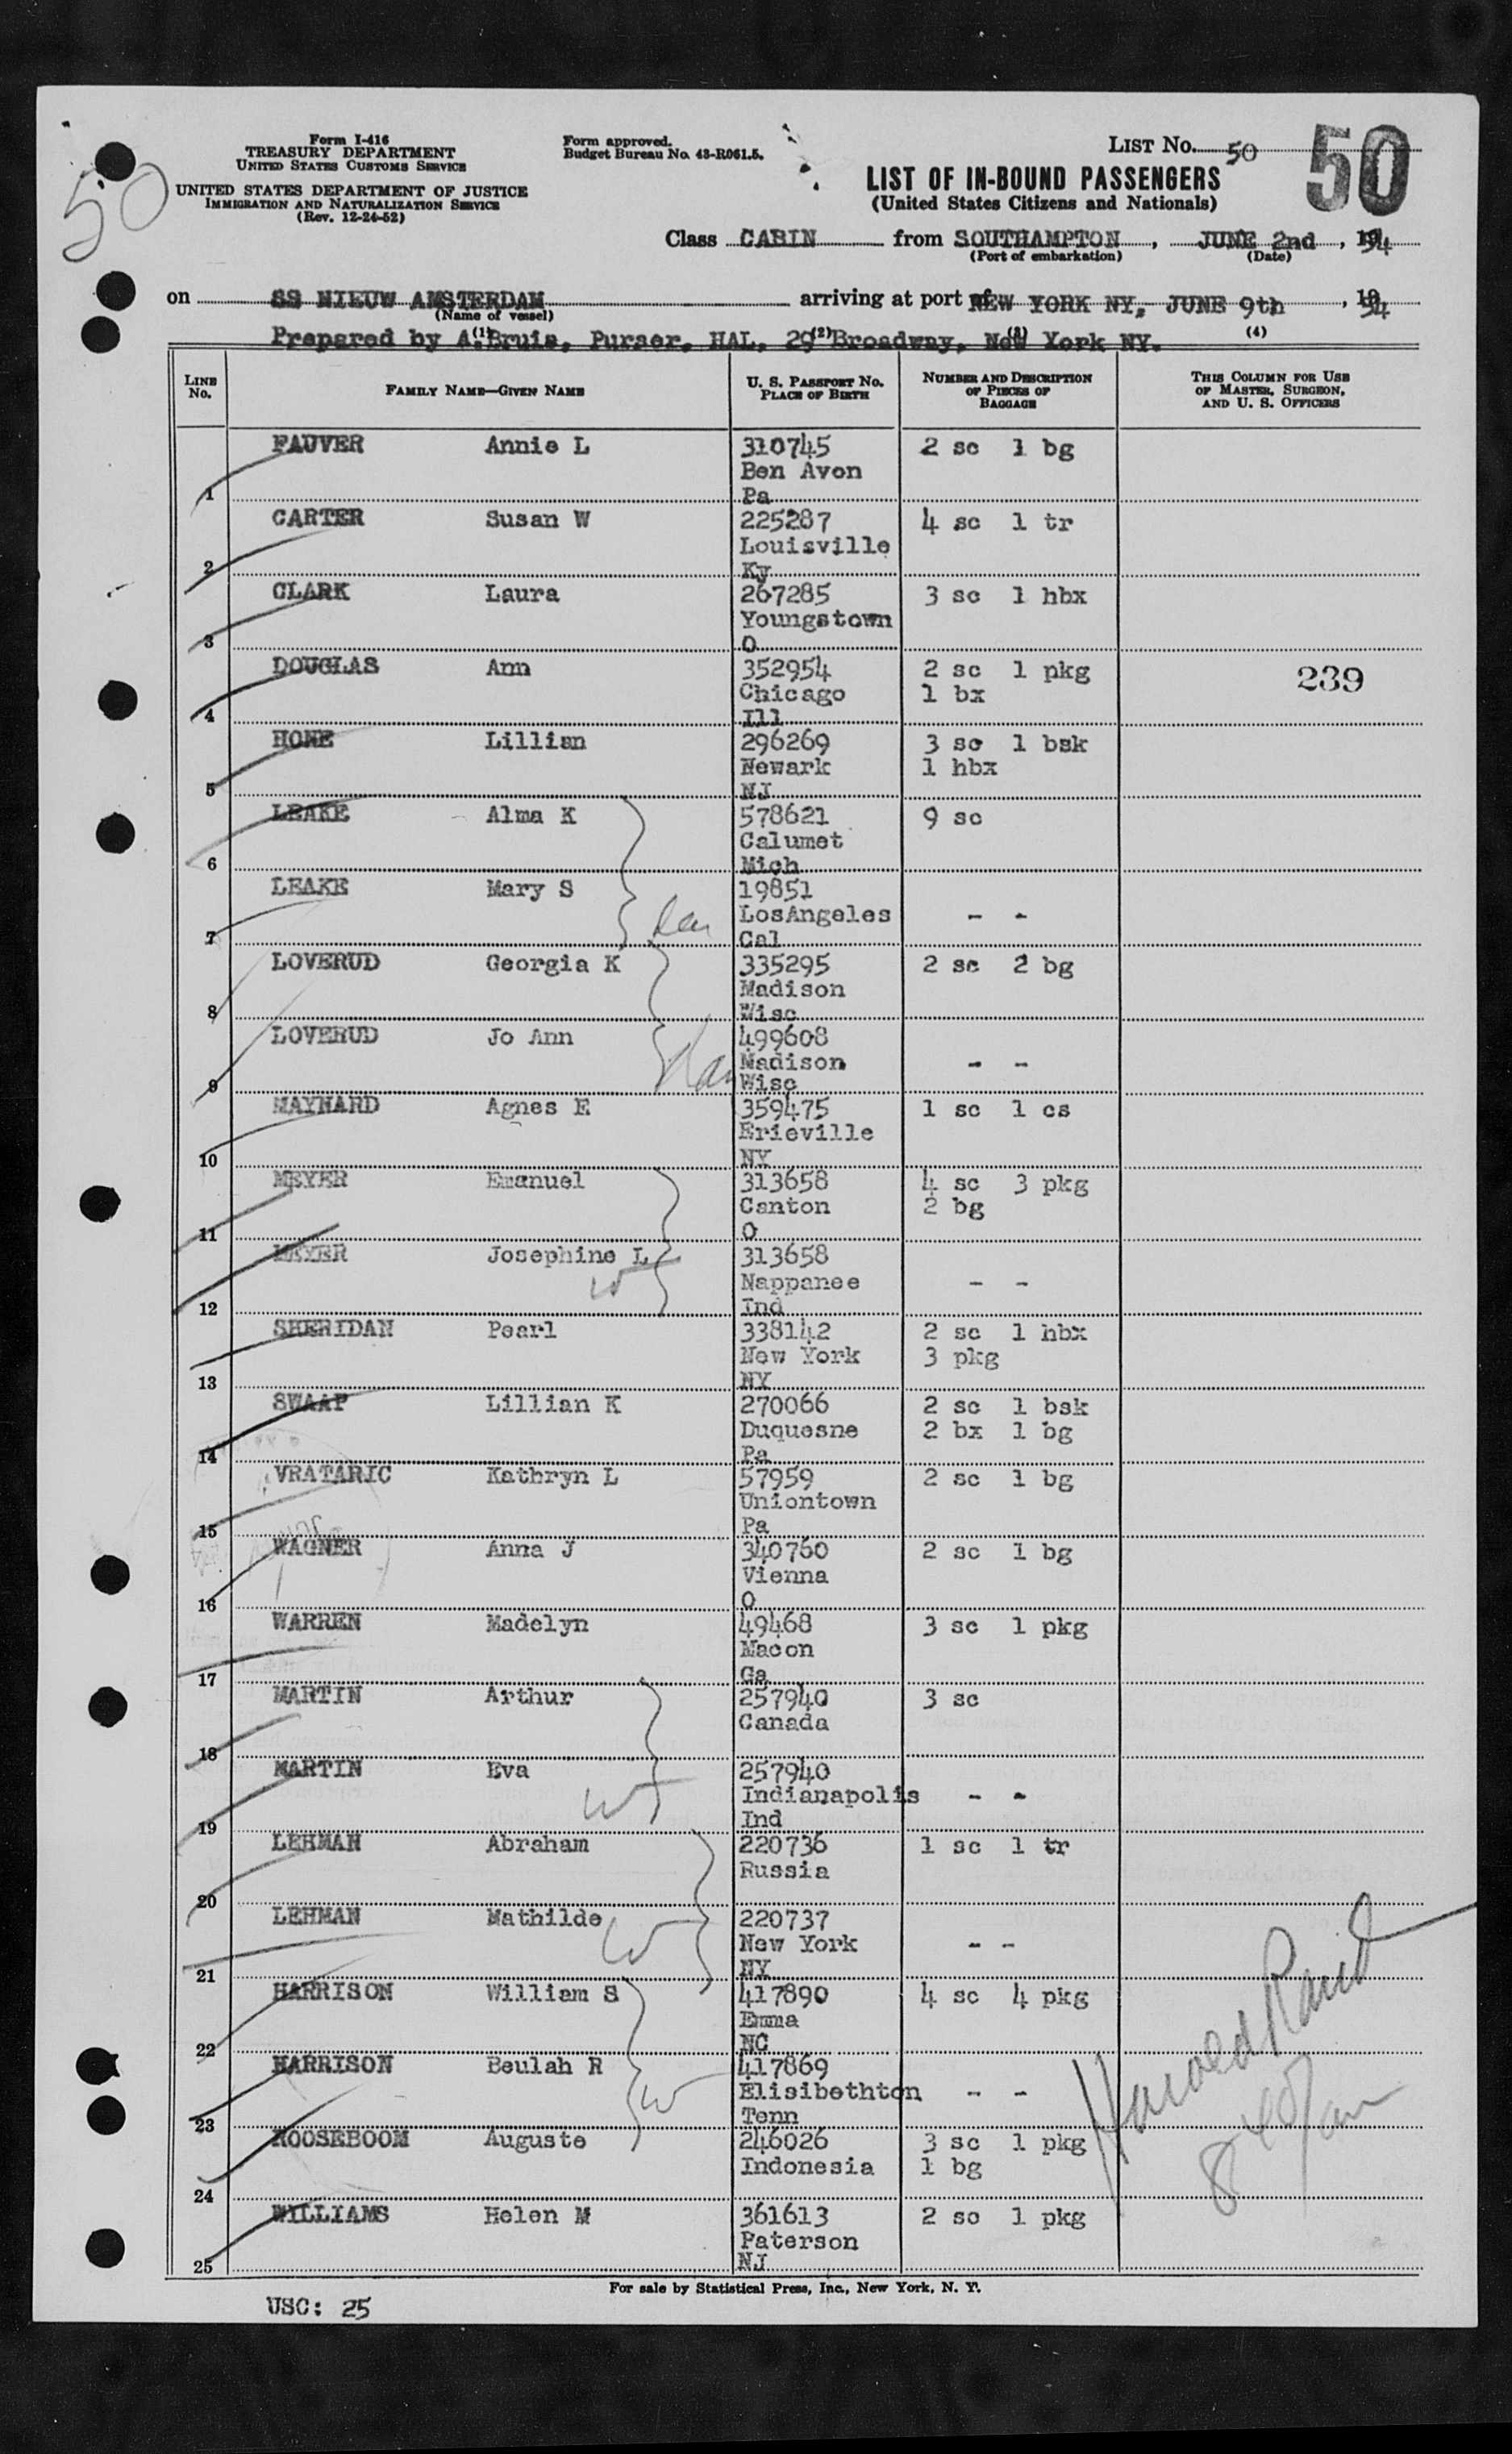 50
Form I-416
TREASURY DEPARTMENT
UNITED STATES CUSTOMS SERVICE
UNITED STATES DEPARTMENT OF JUSTICE
IMMIGRATION AND NATURALIZATION SERVICE
(Rev. 12-24-52)
Form approved.
Budget Bureau No. 43-R061.5.
LIST No. 50
50
LIST OF IN-BOUND PASSENGERS
(United States Citizens and Nationals)
Class CABIN from SOUTHAMPTON, JUNE 2nd, 1954
(Port of embarkation) (Date)
on SS NIEUW AMSTERDAM arriving at port of NEW YORK NY, JUNE 9th, 1954
(Name of vessel)
Prepared by A. Bruis, Purser, HAL, 29 Broadway, New York NY.
(1) (2) (3) (4)
LINE No. FAMILY NAME—GIVEN NAME U. S. PASSPORT No. PLACE OF BIRTH NUMBER AND DESCRIPTION OF PIECES OF BAGGAGE THIS COLUMN FOR USE OF MASTER, SURGEON, AND U. S. OFFICERS
FAUVER Annie L 310745 2 sc 1 bg
Ben Avon
1 Pa
CARTER Susan W 225287 4 sc 1 tr
Louisville
2 Ky
CLARK Laura 267285 3 sc 1 hbx
Youngstown
3 O
DOUGLAS Ann 352954 2 sc 1 pkg 239
Chicago 1 bx
4 Ill
HONE Lillian 296269 3 sc 1 bsk
Newark 1 hbx
5 NJ
LEAKE Alma K 578621 9 sc
Calumet
6 Mich
LEAKE Mary S 19851
LosAngeles - -
7 Cal
LOVERUD Georgia K 335295 2 sc 2 bg
Madison
8 Wisc
LOVERUD Jo Ann 499608
Madison - -
9 Wisc
MAYNARD Agnes E 359475 1 sc 1 cs
Erieville
10 NY
MEYER Emanuel 313658 4 sc 3 pkg
Canton 2 bg
11 O
MEYER Josephine L 313658
Nappanee - -
12 Ind
SHERIDAN Pearl 338142 2 sc 1 hbx
New York 3 pkg
13 NY
SWAAP Lillian K 270066 2 sc 1 bsk
Duquesne 2 bx 1 bg
14 Pa
VRATARIC Kathryn L 57959 2 sc 1 bg
Uniontown
15 Pa
WAGNER Anna J 340760 2 sc 1 bg
Vienna
16 O
WARREN Madelyn 49468 3 sc 1 pkg
Macon
17 Ga
MARTIN Arthur 257940 3 sc
Canada
18
MARTIN Eva 257940
Indianapolis - -
19 Ind
LEHMAN Abraham 220736 1 sc 1 tr
Russia
20
LEHMAN Mathilde 220737
New York - -
21 NY
HARRISON William S 417890 4 sc 4 pkg
Emma
22 NC
HARRISON Beulah R 417869
Elisibethton - -
23 Tenn
ROOSEBOOM Auguste 246026 3 sc 1 pkg
Indonesia 1 bg
24
WILLIAMS Helen M 361613 2 sc 1 pkg
Paterson
25 NJ
Harold Rand
For sale by Statistical Press, Inc., New York, N. Y.
USC: 25